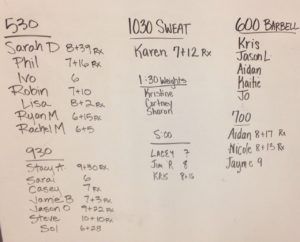 530
Sarah D 8+39 Rx
Phil 7+16 Rx
Ivo 6
Robin 7+10
Lisa 8+2 Rx
Ryan M 6+15 Rx
Rachel M 6+5
930
Stacy H. 9+30 Rx
Sarai 6
Casey 7 Rx
Jamie B 7+3 Rx
Jason O 9+22 Rx
Steve 10+10 Rx
Sol 6+28
1030 SWEAT
Karen 7+12 Rx
1:30 Weights
Kristine
Cortney
Sharon
5:00
LACEY 7
Jim R 8
KRIS 8+16
600 BARBELL
Kris
Jason L
Aidan
Kaitie
Jo
700
Aidan 8+17 Rx
Nicole 8+13 Rx
Jayne 9